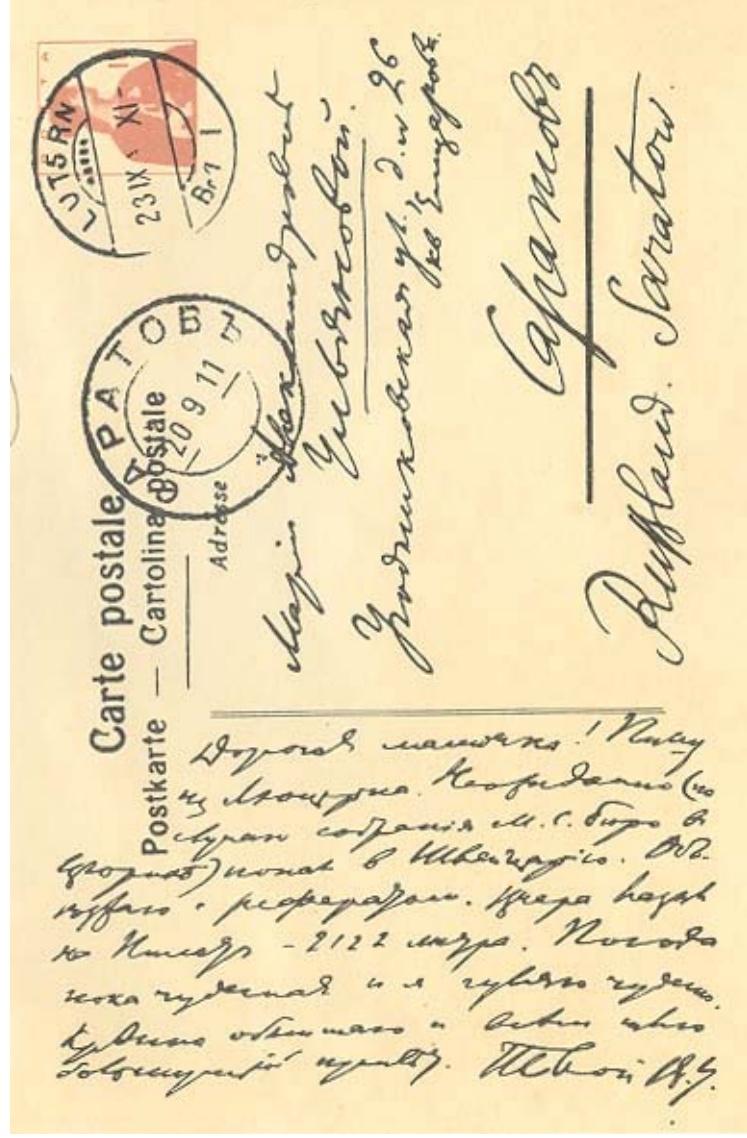 Carte postale
Postkarte — Cartolina postale
Adresse
LUZERN
23 IX 11 XI-
Br. 1
САРАТОВЪ
20 9 11
Маріи Александровне
Ульяновой.
Угодниковская ул. д. № 26
кв
Саратовъ
Russland. Saratow.
Дорогая мамочка! Пишу
из Люцерна. Неожиданно (по
случаю собранія М. С. бюро в
Цюрихе) попал в Швейцарію. Объ-
езжаю с рефератом. Вчера лазил
на - 2122 метра. Погода
пока чудесная и я гуляю чудесно.
Крепко обнимаю и всем шлю
большущій привет. Твой В. У.